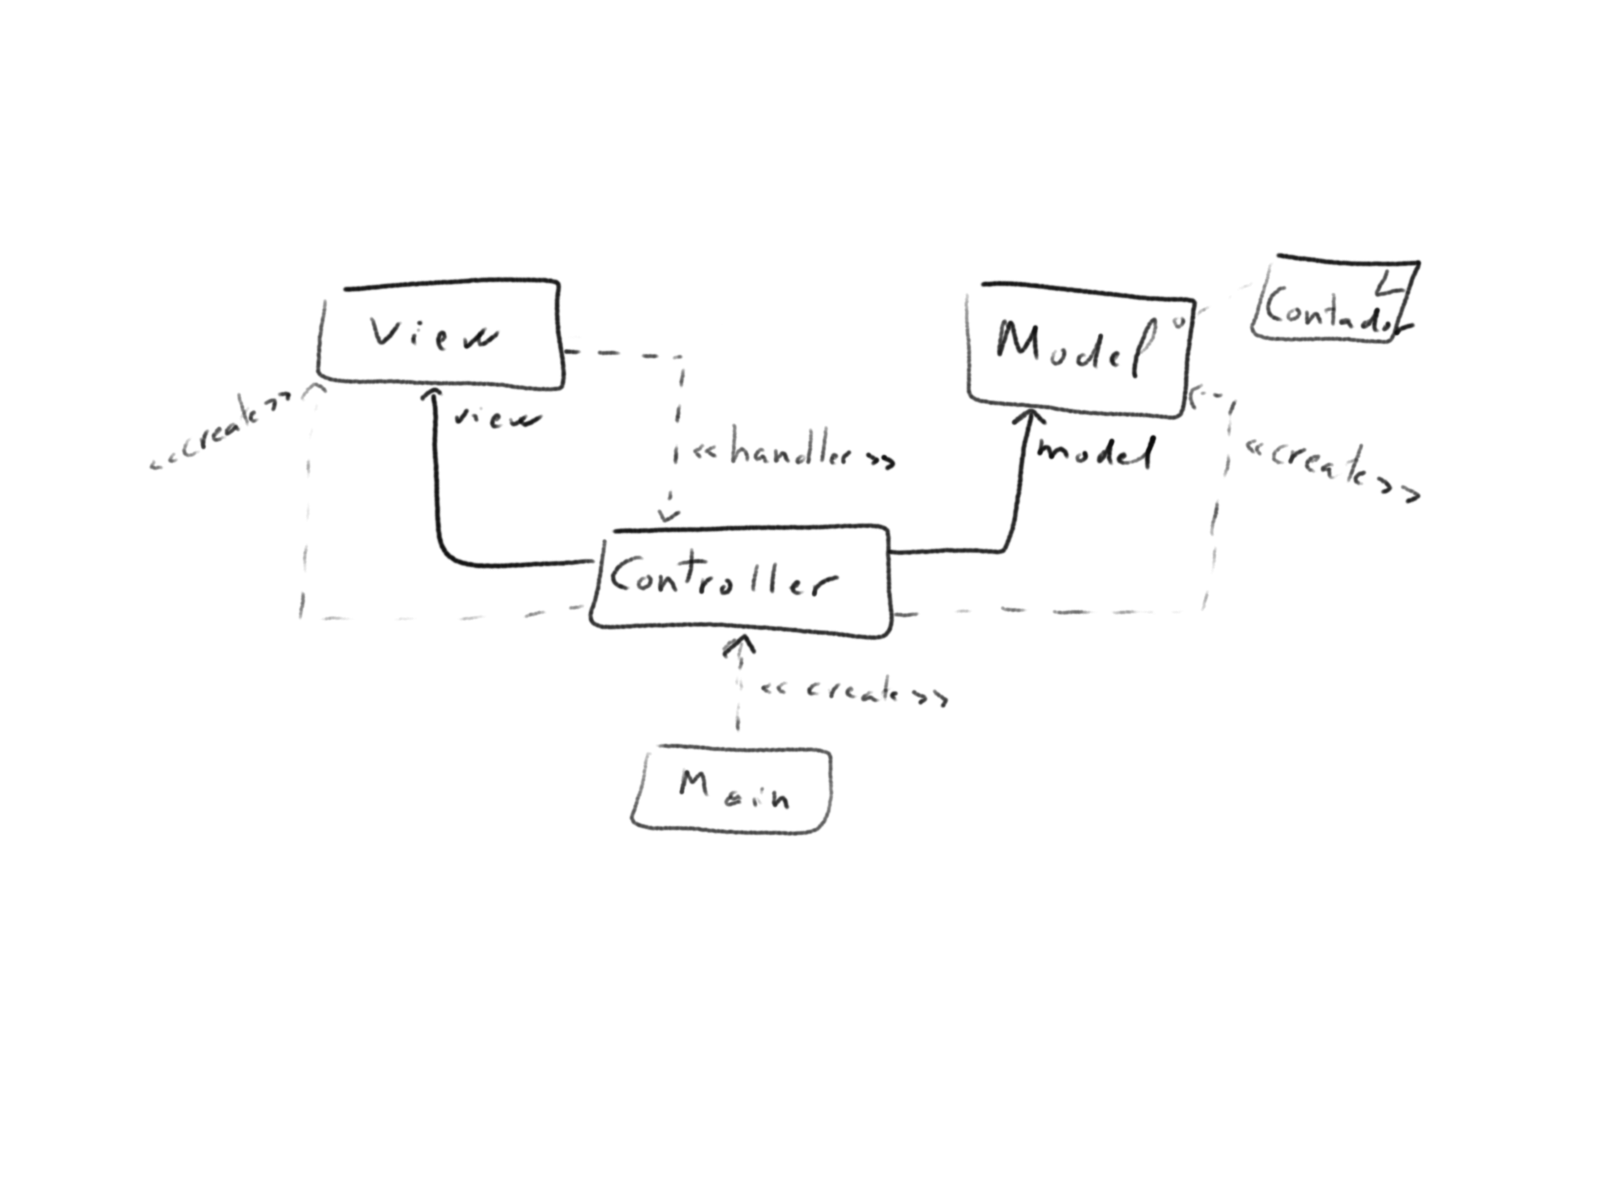 View
Model
Contador
view
<<create>>
<<handler>>
model
<<create>>
Controller
<<create>>
Main